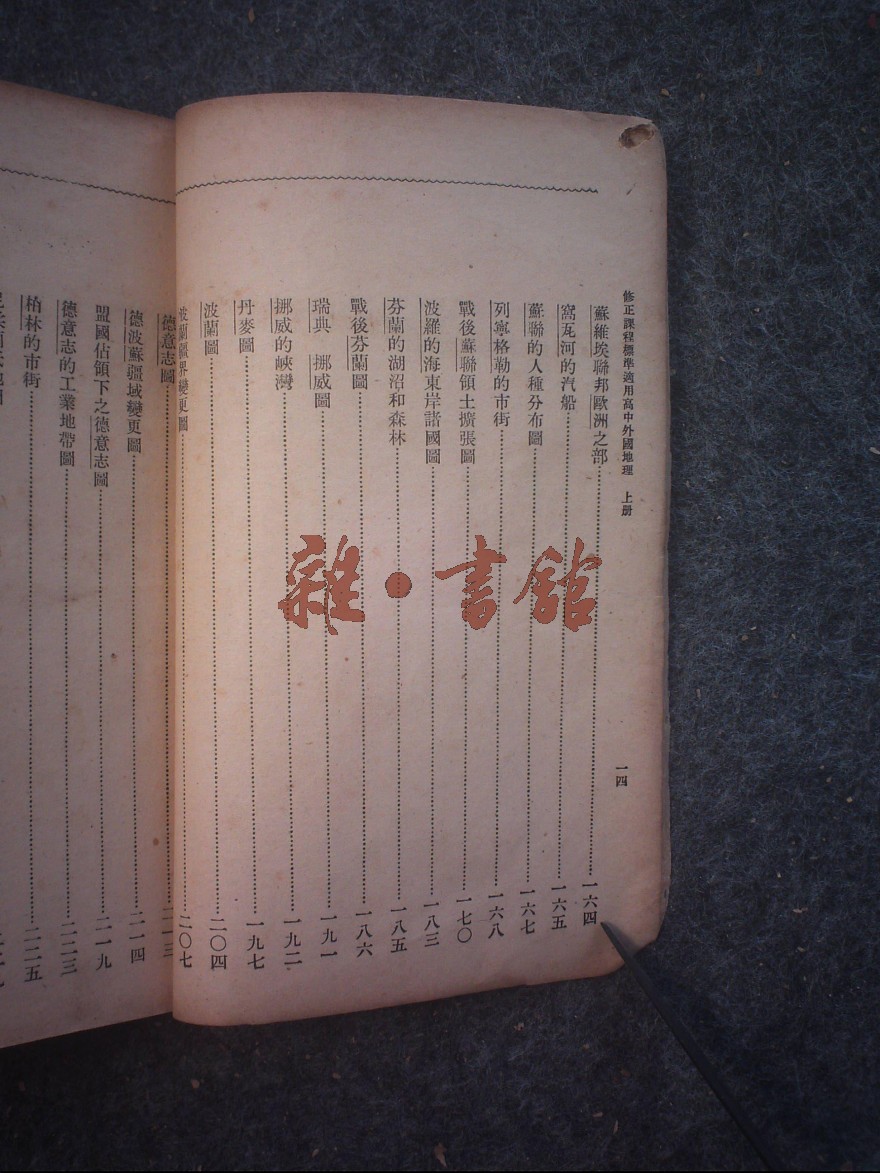 修正課程標準適用高中外國地理　上册
一四
蘇維埃聯邦歐洲之部………一六四
窩瓦河的汽船………一六五
蘇聯的人種分布圖………一六七
列寧格勒的市街………一六八
戰後蘇聯領土擴張圖………一七〇
波羅的海東岸諸國圖………一八三
芬蘭的湖沼和森林………一八五
戰後芬蘭圖………一八六
瑞典　挪威圖………一九一
挪威的峽灣………一九二
丹麥圖………一九七
波蘭圖………二〇四
波蘭疆界變更圖………二〇七
德意志圖………二一三
德波蘇疆域變更圖………二一四
盟國佔領下之德意志圖………二一九
德意志的工業地帶圖………二二三
柏林的市街………二二五
雜·書館